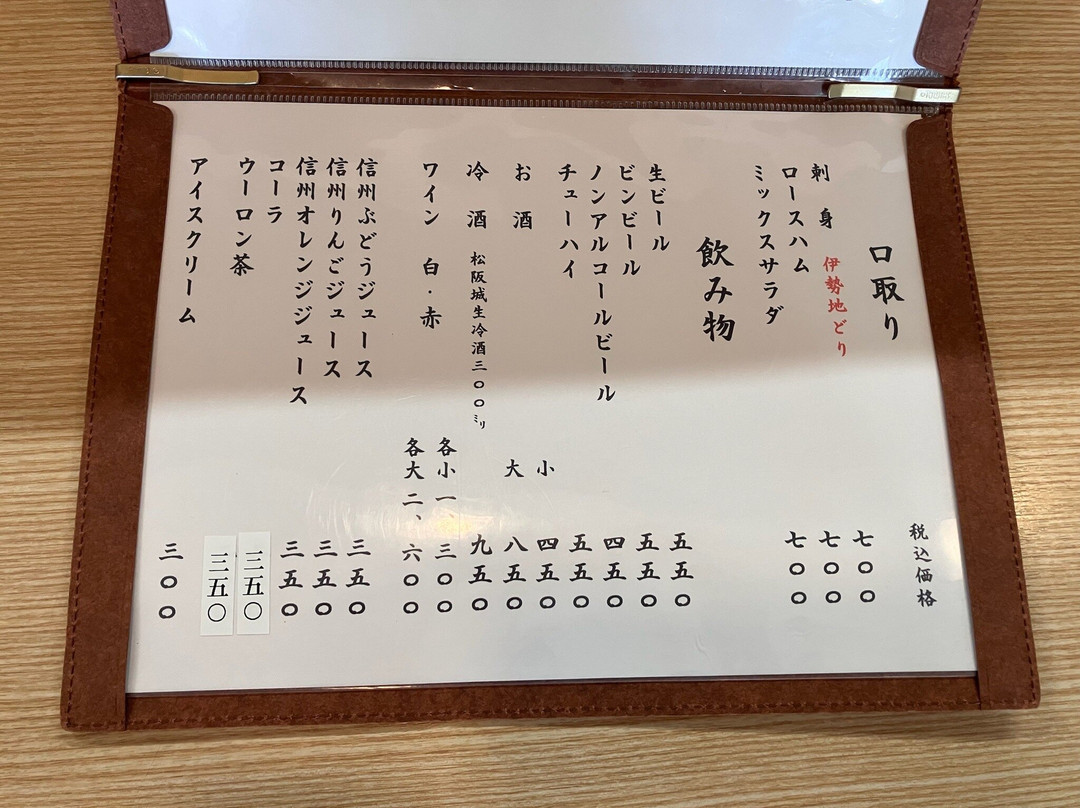 税込価格
口取り
刺身 伊勢地どり 七〇〇
ロースハム 七〇〇
ミックスサラダ 七〇〇
飲み物
生ビール 五五〇
ビンビール 五五〇
ノンアルコールビール 四五〇
チューハイ 五五〇
お酒 小 四五〇
大 八五〇
冷酒 松阪城生冷酒三〇〇ミリ 九五〇
ワイン 白・赤 各小 一、三〇〇
各大 二、六〇〇
信州ぶどうジュース 三五〇
信州りんごジュース 三五〇
信州オレンジジュース 三五〇
コーラ 三五〇
ウーロン茶 三五〇
アイスクリーム 三〇〇